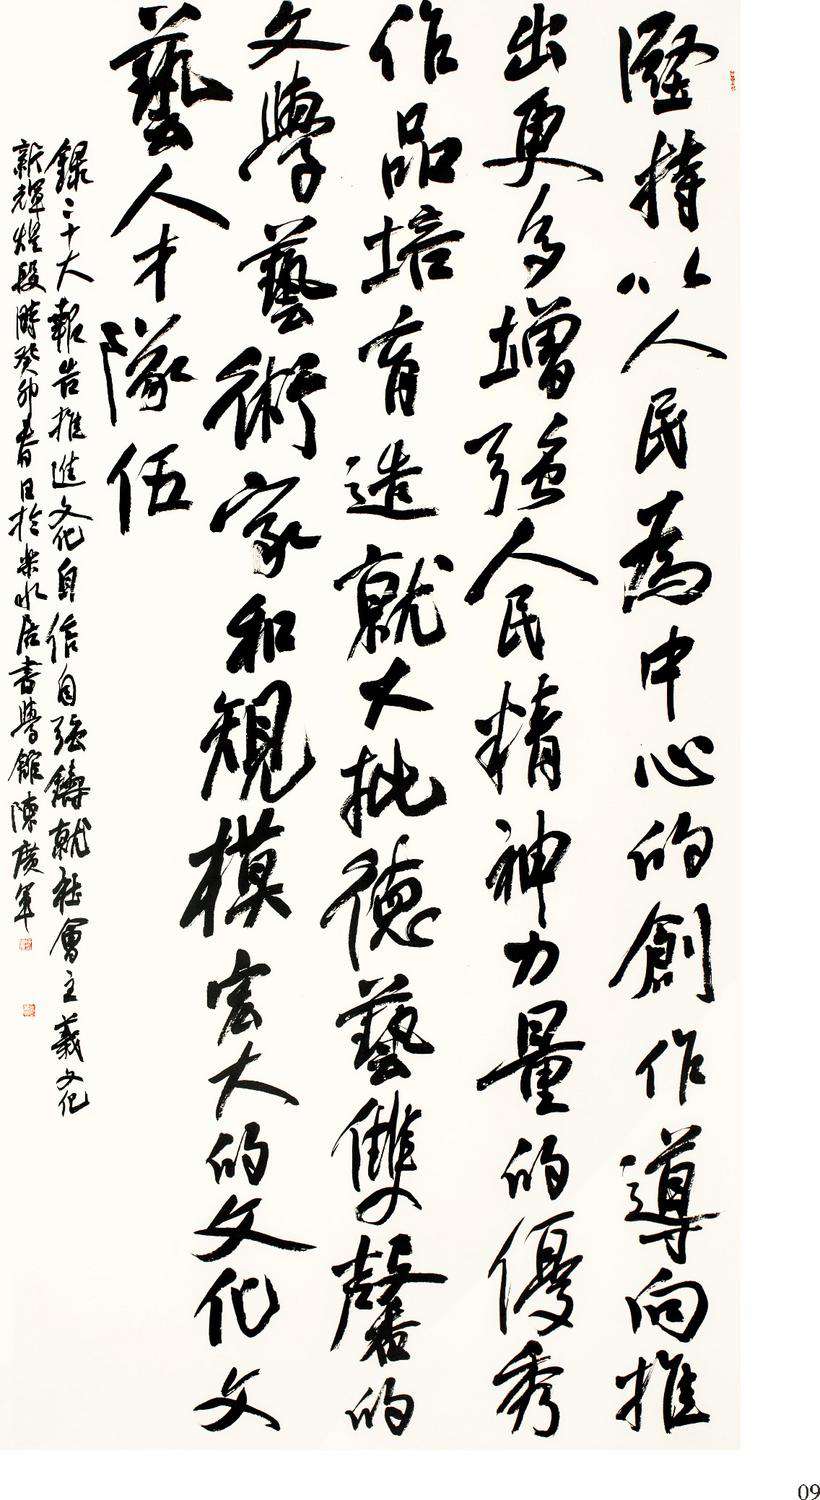 堅持以人民為中心的創作導向推
出更多增強人民精神力量的優秀
作品培育造就大批德藝雙馨的
文學藝術家和規模宏大的文化文
藝人才隊伍
錄二十大報告推進文化自信自強鑄就社會主義文化
新輝煌段時癸卯春日於樂水居書學館陳廣軍
09